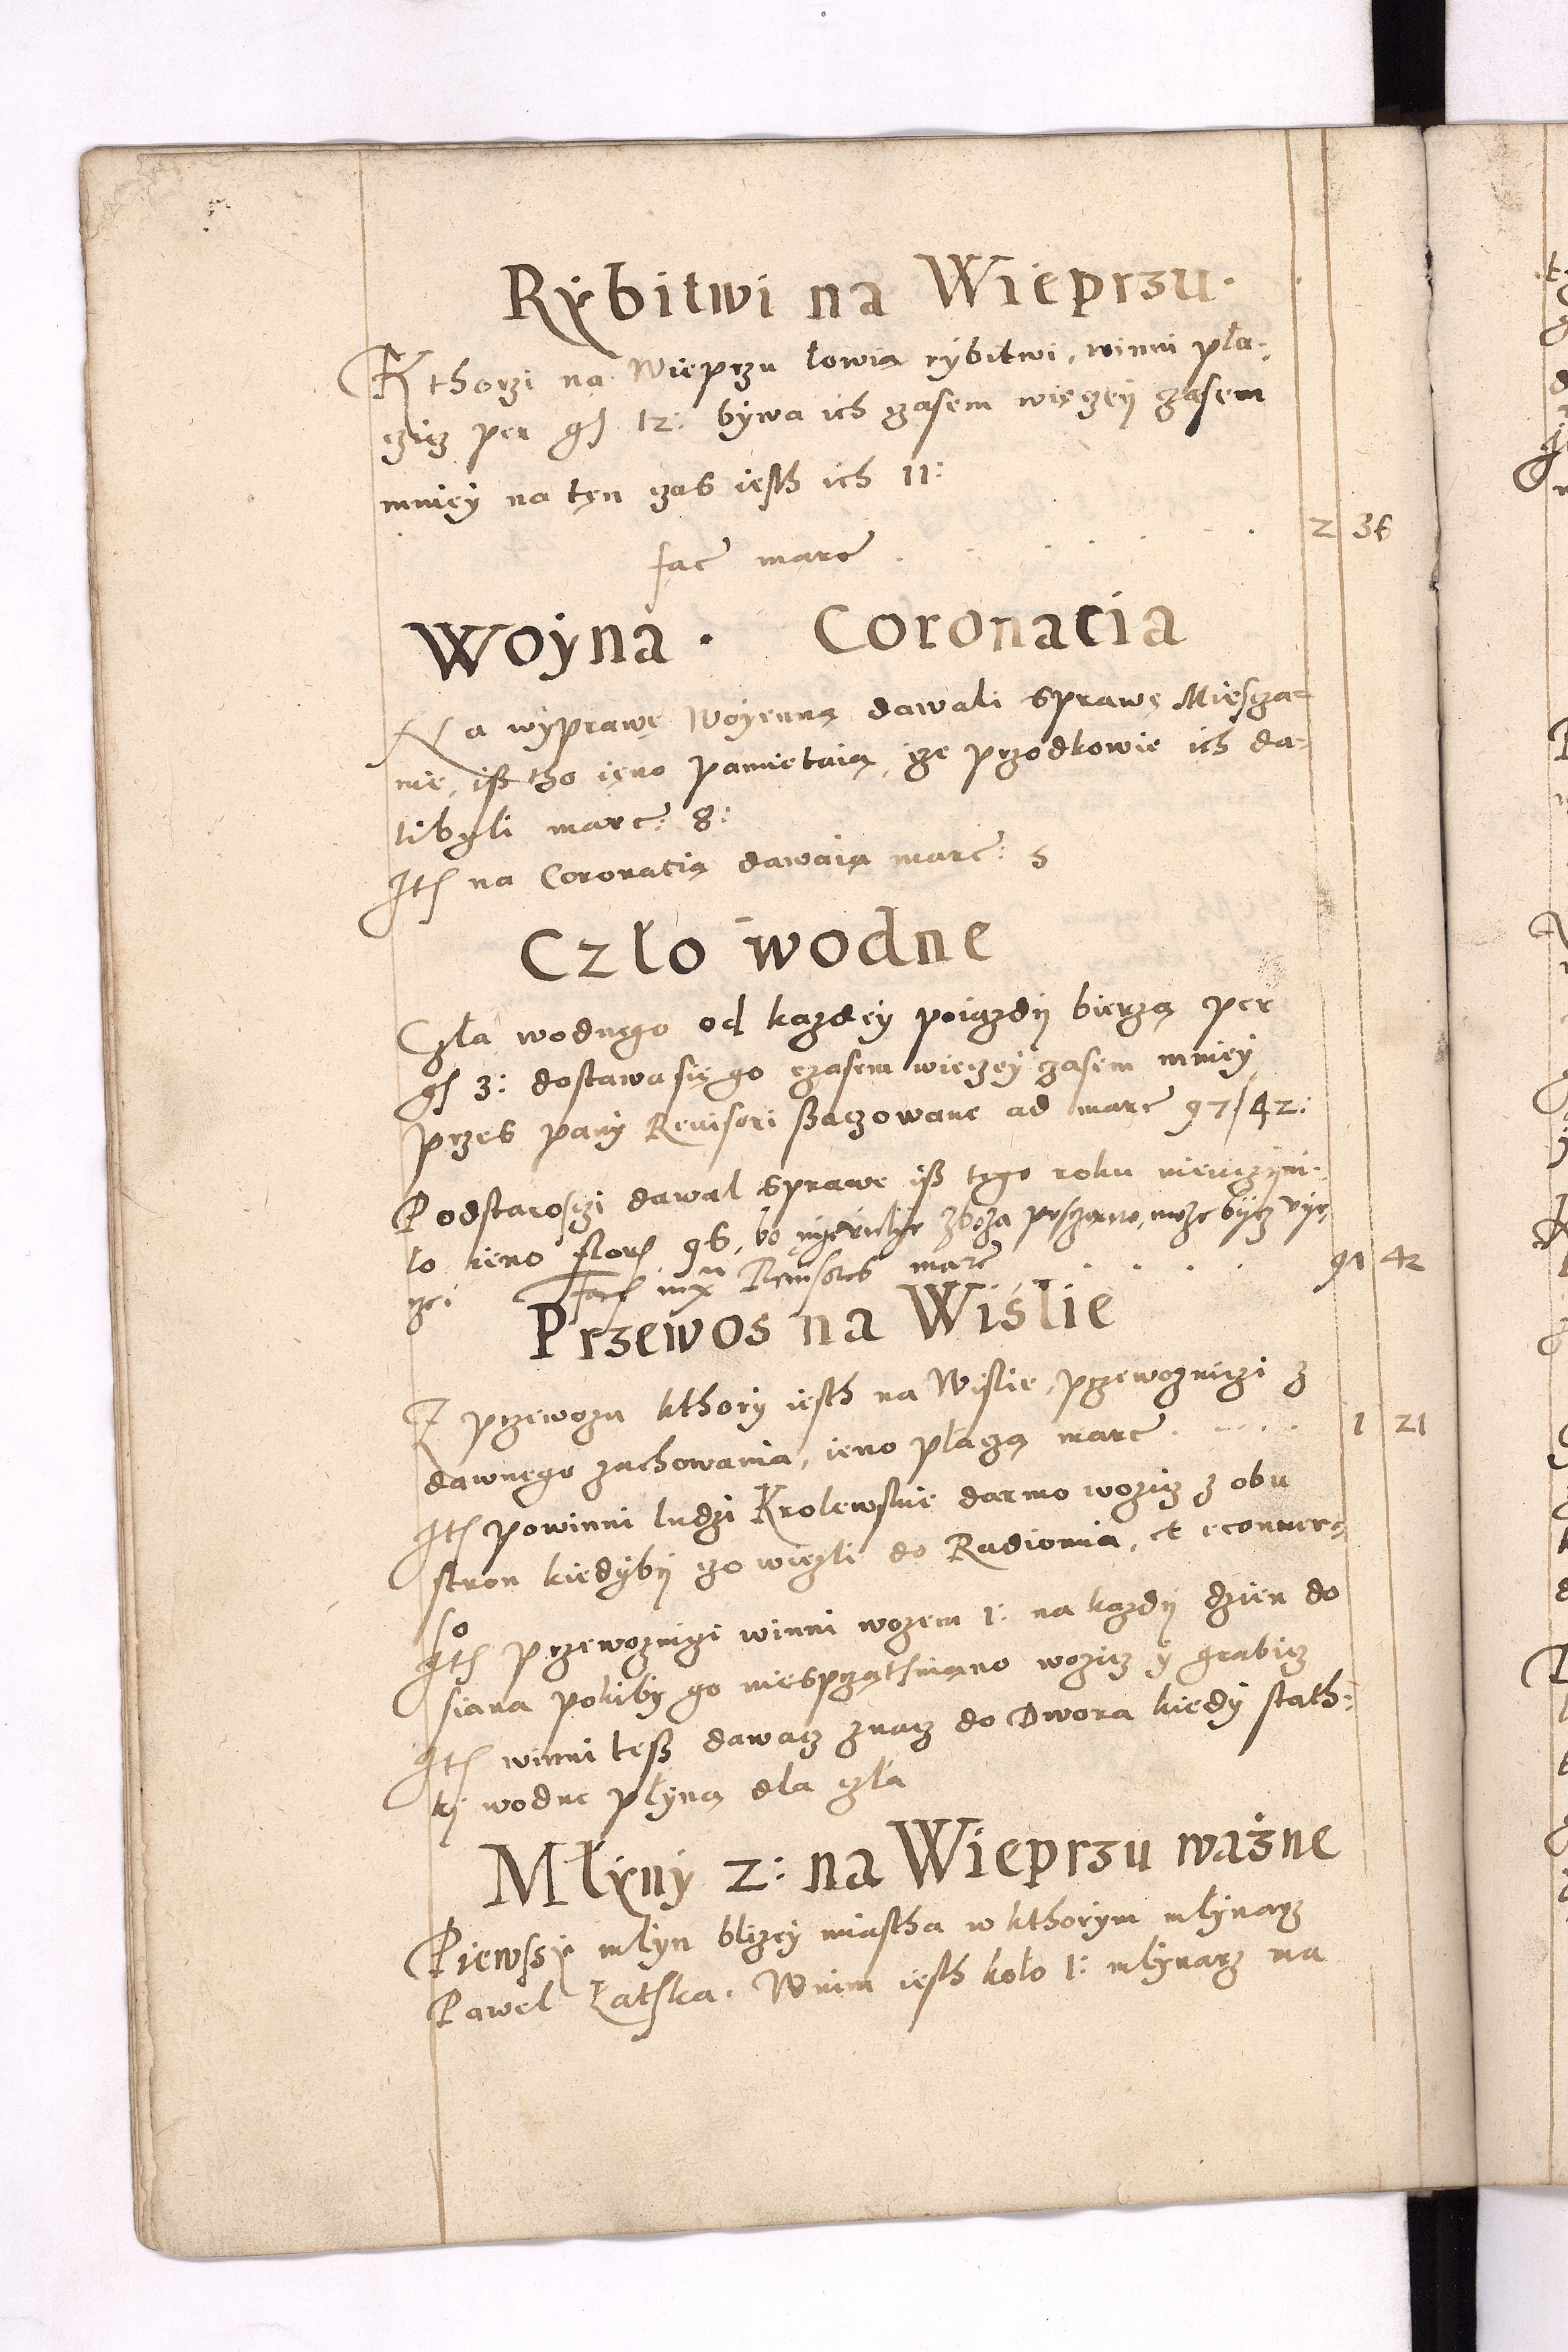 Rybitwi na Wieprzu.
Kthorzi na Wieprzu łowią rybitwi, winni pła-
czicz per gſ 12: bywa ich czasem więczey czasem
mniey na ten czas iesth ich 11:
fac marc . . . . . . 2 36
Woyna . Coronatia
Na wyprawę Woyenną dawali sprawę Miescza-
nie, iß tho ieno pamietaią, że przodkowie ich da-
li byli marc: 8:
Itſ na Coronatią dawaią marc: 5
Czło wodne
Czła wodnego od kazdey poiazdy bierzą per
gſ 3: dostawa się go czasem wieczey czasem mniey
przes pany Reuisori ßaczowane ad marc 97/42:
Podstaroszczi dawal sprawe iß tego roku nieuczyni-
ło ieno florſ 96, bo zboża moze bycz vye-
czei Facſ Reuisores marc . . . . 91 42
Przewos na Wiślie
Z przewozu kthory iesth na Wislie, przewozniczi z
dawnego zachowania, ieno płaczą marc . . . . . 1 21
Itſ powinni ludzi Krolewskie darmo wozicz z obu
stron kiedyby czo wiezli do Radiomia, et econuer-
so
Itſ przewozniczi winni wozem 1: na kazdy dzien do
siana pokiby go niesprzątsniano wozicz y grabicz
Itſ winni teß dawacz znacz do Dwora kiedy stath-
kj wodne płyną dla czła
Młyny 2: na Wieprzu ważne
Pierwßy młyn blizey miastha w kthorym młynarz
Pawel Łatska. Wnim iesth koło 1: młynarz na